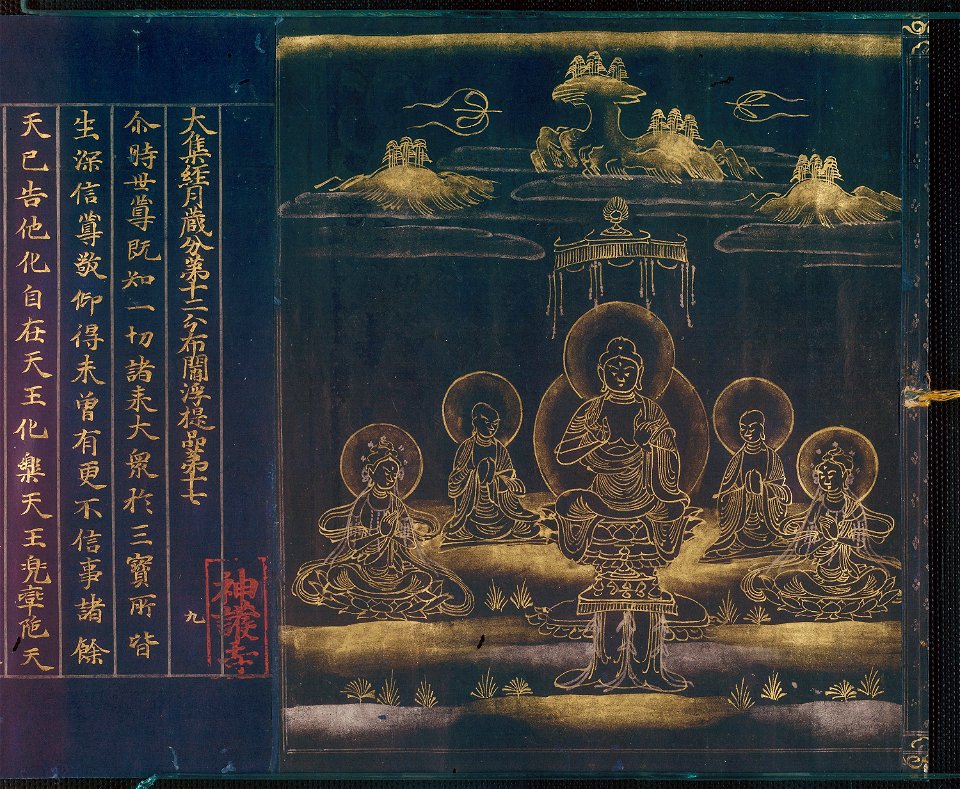 大集經月藏分第十二分布閻浮提品第十七
尒時世尊既知一切諸来大衆於三寶所皆
生深信尊敬仰得未曾有更不信事諸餘
天已告他化自在天王化樂天王兠率陁天
九
神護寺